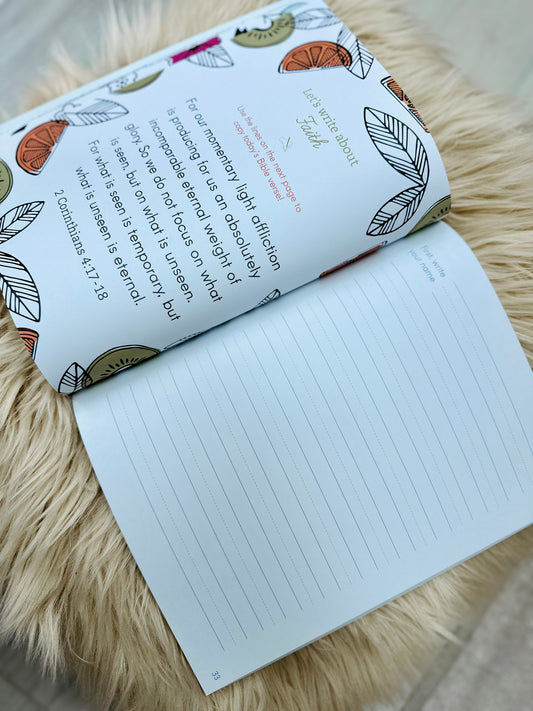 Let's write about
Faith
Use the lines on the next page to
copy today's Bible verse!
For our momentary light affliction
is producing for us an absolutely
incomparable eternal weight of
glory. So we do not focus on what
is seen, but on what is unseen.
For what is seen is temporary, but
what is unseen is eternal.
2 Corinthians 4:17-18
First, write
your name
33